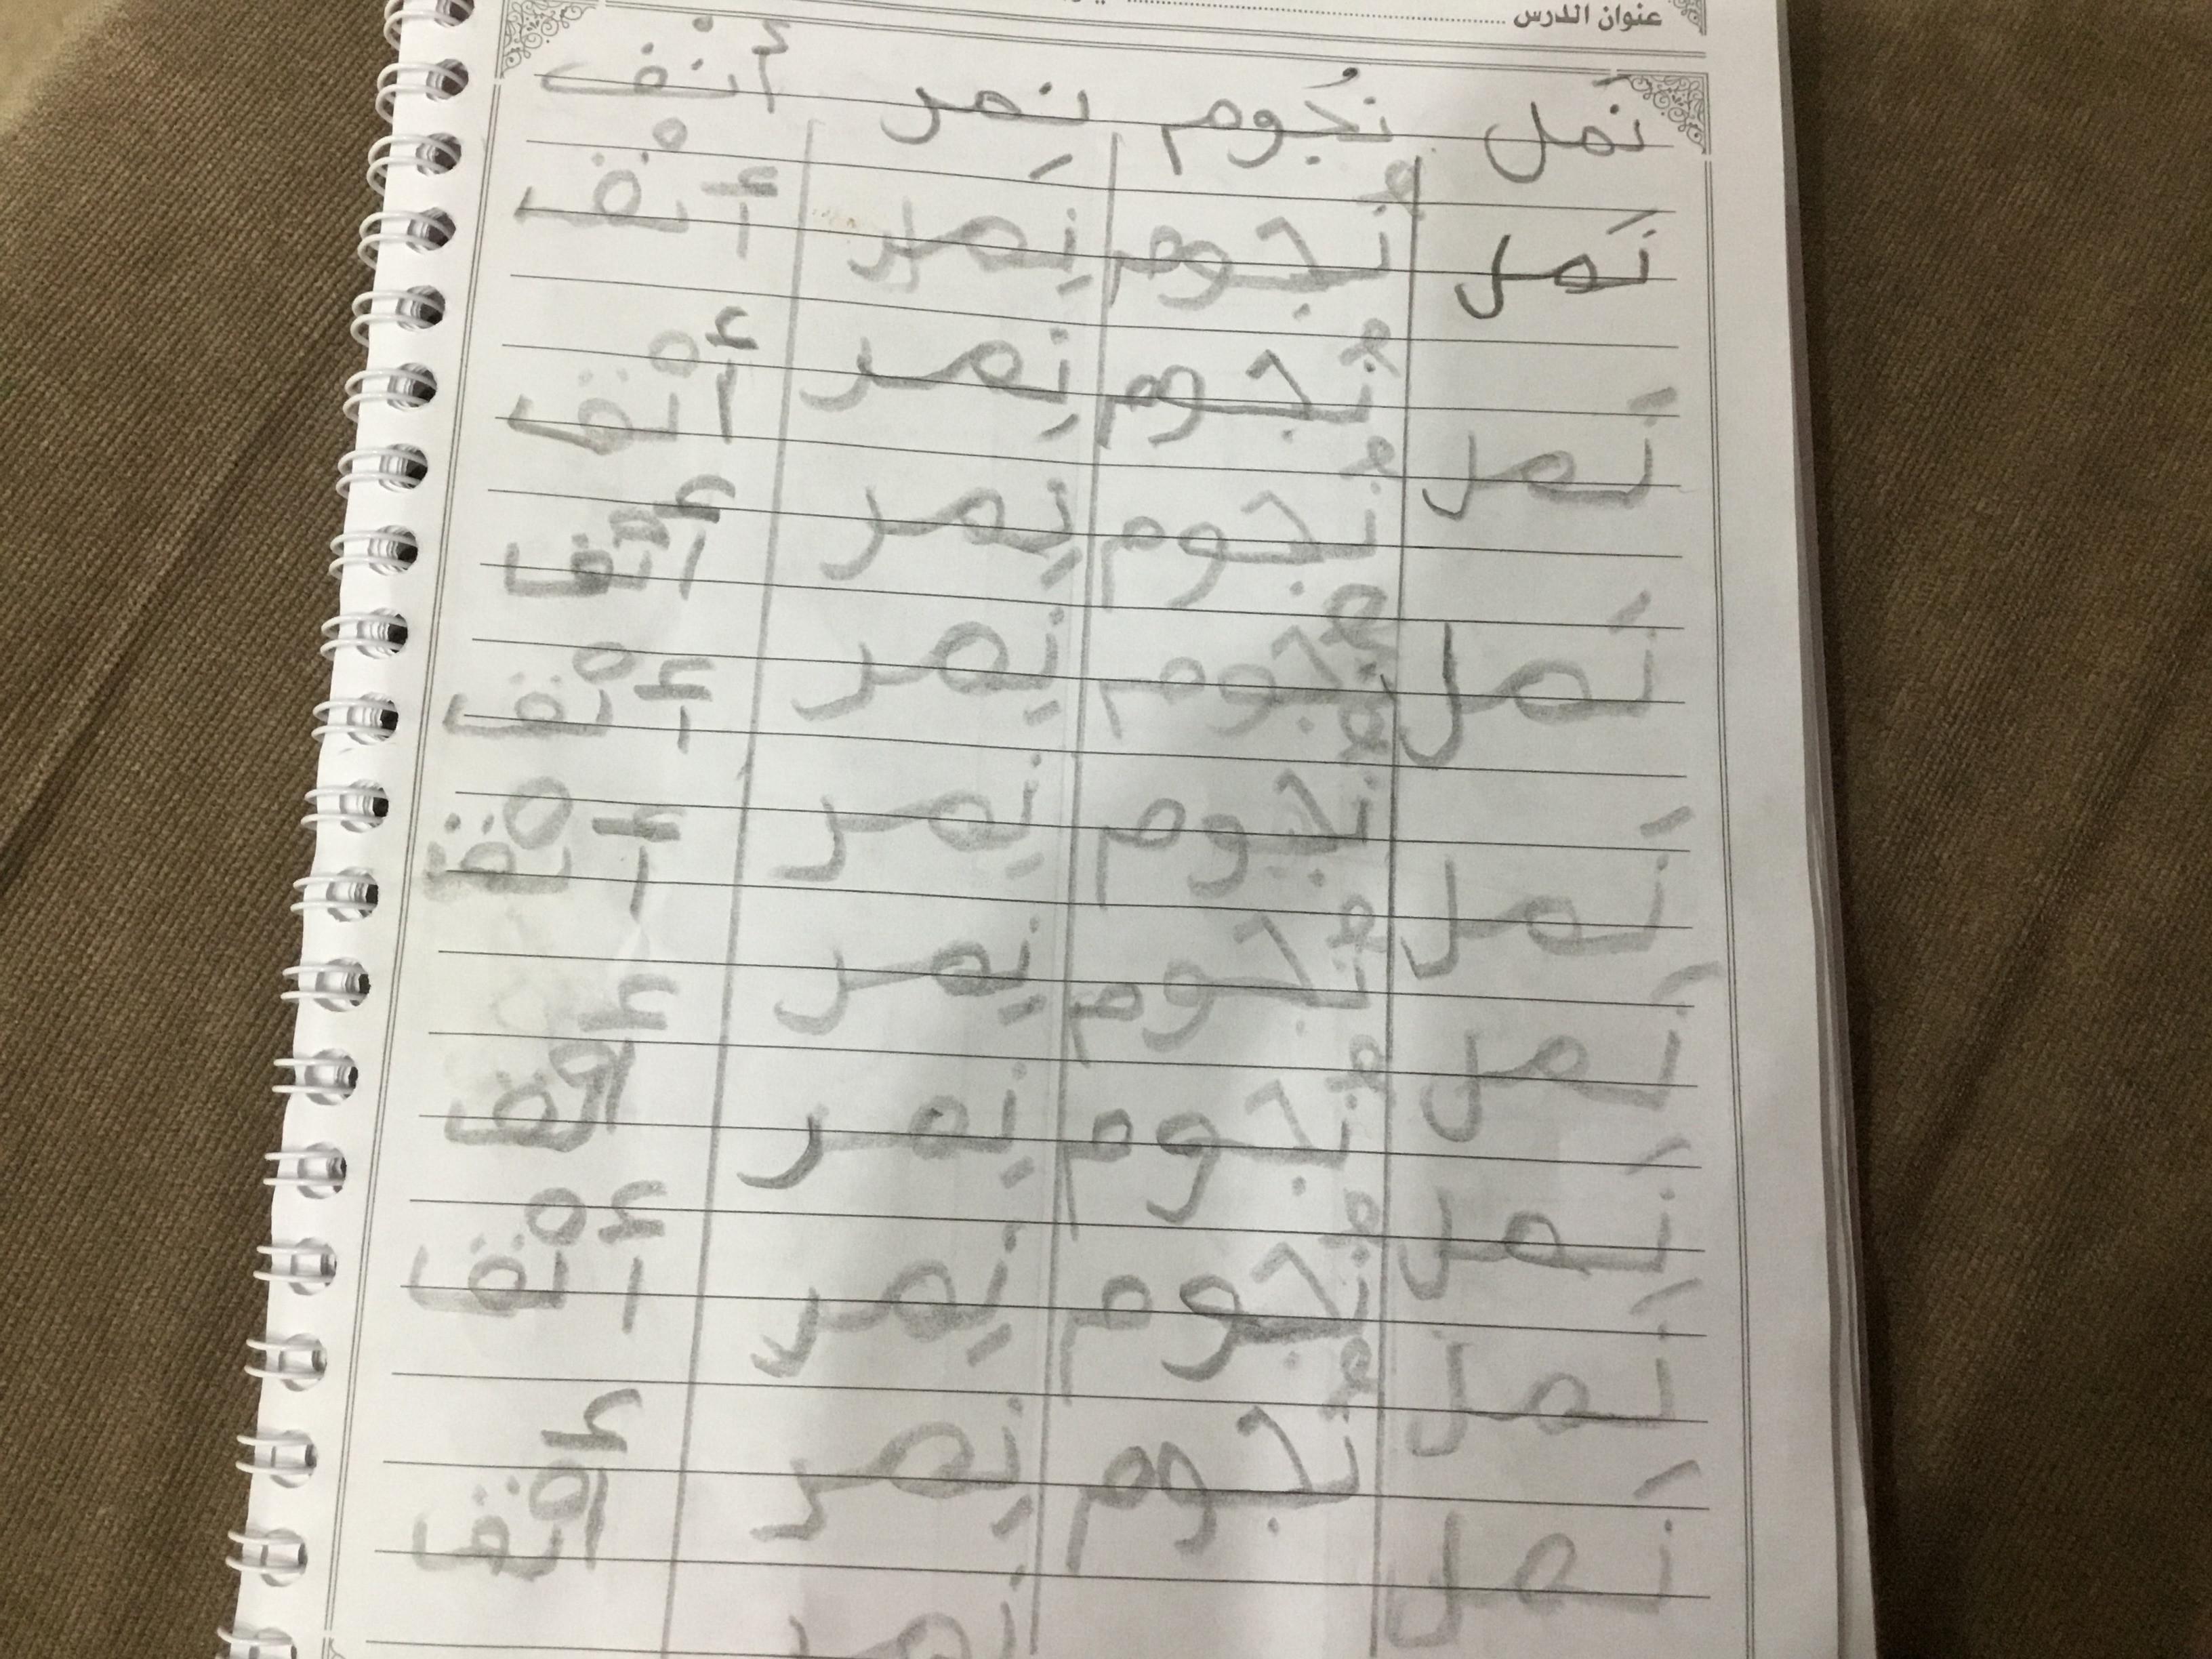 عنوان الدرس
نَمل نجُوم نِمر أنْف
نَمل نُجوم نِمر أنْف
نَمل نُجوم نِمر أنْف
نَمل نُجوم نِمر أنْف
نَمل نُجوم نِمر أنْف
نَمل نُجوم نِمر أنْف
نَمل نُجوم نِمر أنْف
نَمل نُجوم نِمر أنْف
نَمل نُجوم نِمر أنْف
نُجوم نِمر
نمر